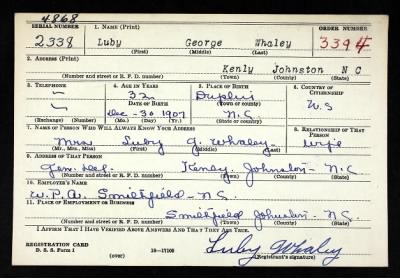 4868
SERIAL NUMBER 1. NAME (Print) ORDER NUMBER
2338 Luby George Whaley 3394
(First) (Middle) (Last)
2. ADDRESS (Print)
Kenly Johnston N C
(Number and street or R. F. D. number) (Town) (County) (State)
3. TELEPHONE 4. AGE IN YEARS 5. PLACE OF BIRTH 6. COUNTRY OF CITIZENSHIP
32 Duplin
DATE OF BIRTH (Town or county)
Dec-30 1907 N.C. U.S
(Exchange) (Number) (Mo.) (Day) (Yr.) (State or country)
7. NAME OF PERSON WHO WILL ALWAYS KNOW YOUR ADDRESS 8. RELATIONSHIP OF THAT PERSON
Mrs Luby G. Whaley- Wife
(Mr., Mrs., Miss) (First) (Middle) (Last)
9. ADDRESS OF THAT PERSON
Gen. Del. Kenly. Johnston- N.C
(Number and street or R. F. D. number) (Town) (County) (State)
10. EMPLOYER'S NAME
W.P.A. Smithfield- N.C.
11. PLACE OF EMPLOYMENT OR BUSINESS
Smithfield Johnston- N.C.
(Number and street or R. F. D. number) (Town) (County) (State)
I AFFIRM THAT I HAVE VERIFIED ABOVE ANSWERS AND THAT THEY ARE TRUE.
REGISTRATION CARD
D. S. S. Form 1 (over) 16-17105 Luby Whaley
(Registrant's signature)